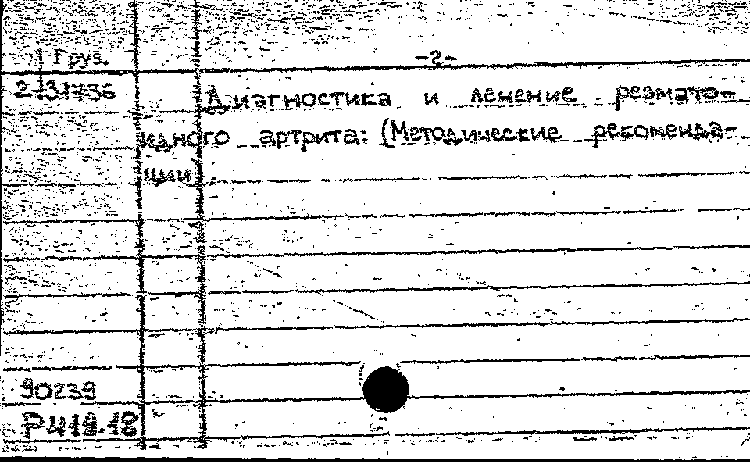 Груз. -2-
2-31736
Диагностика и лечение ревмато-
идного артрита: (Методические рекоменда-
ции).
90239
Р418.18